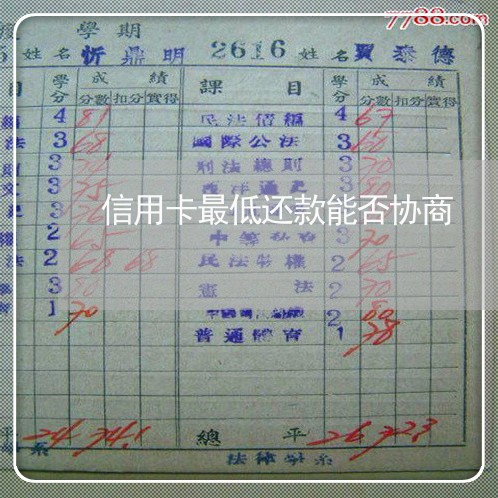 7788.com
學期
姓名 忻鼎明 2616 姓名 賈泰德
目 學分 成績 課目 學分 成績
分數 扣分 實得 分數 扣分 實得
4 81 民法債編 4 67
法 3 68 國際公法 3 60
3 刑法總則 3 70
文 3 75 西洋通史 3 80
信用卡最低还款能否协商
2 65 3 70
法 2 68 68 民法物權 2 65
3 80 憲法 2 70
1 70 2 80
普通體育 1 78
平 24 74.1 總平 26 72.3
系 法律學系